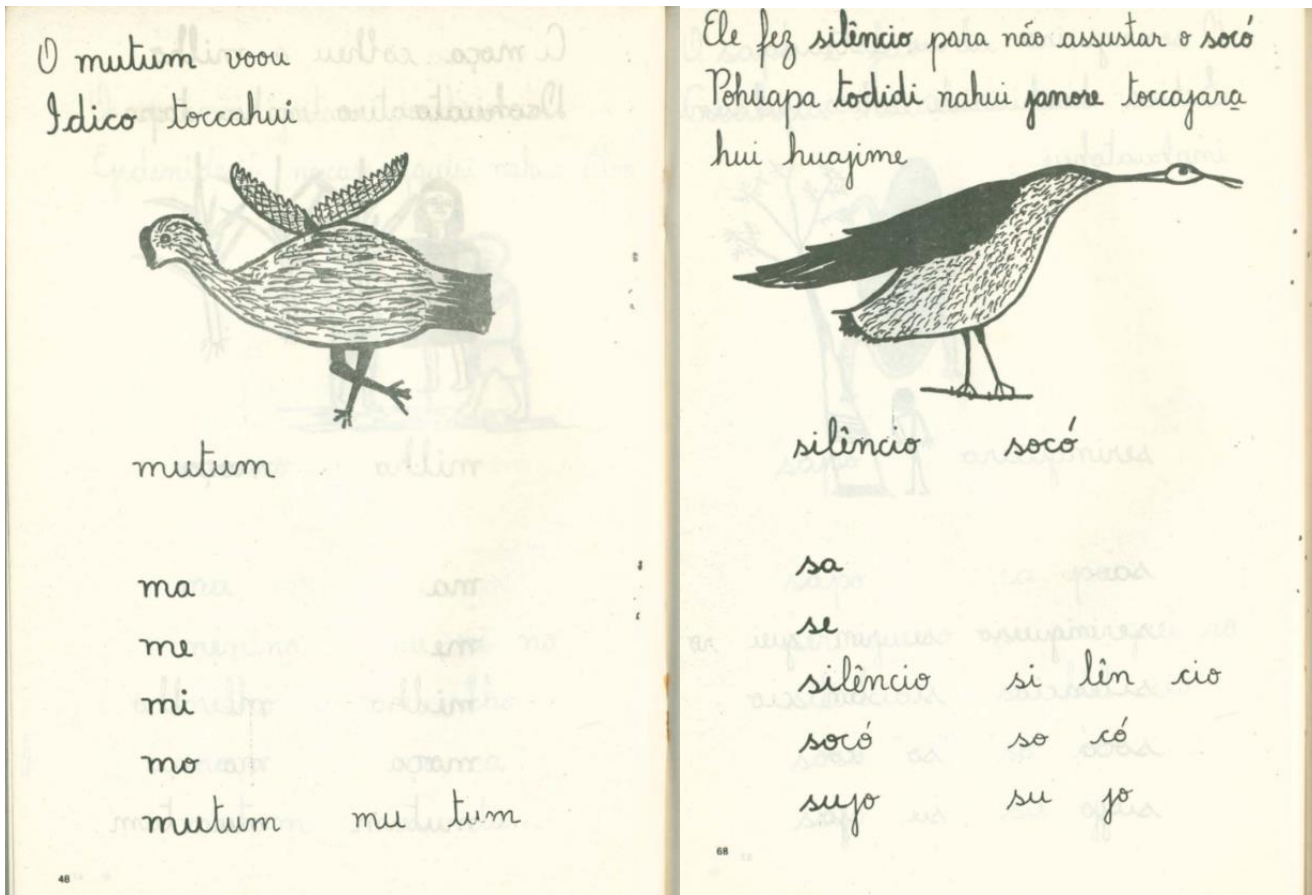 O mutum voou
Idico toccahuí
mutum
ma
me
mi
mo
mutum mu tum
48
Ele fez silêncio para não assustar o socó
Pohuapa toclidi nahui janore toccajara
hui huajime
silêncio socó
sa
se
silêncio si lên cio
socó so có
sujo su jo
68